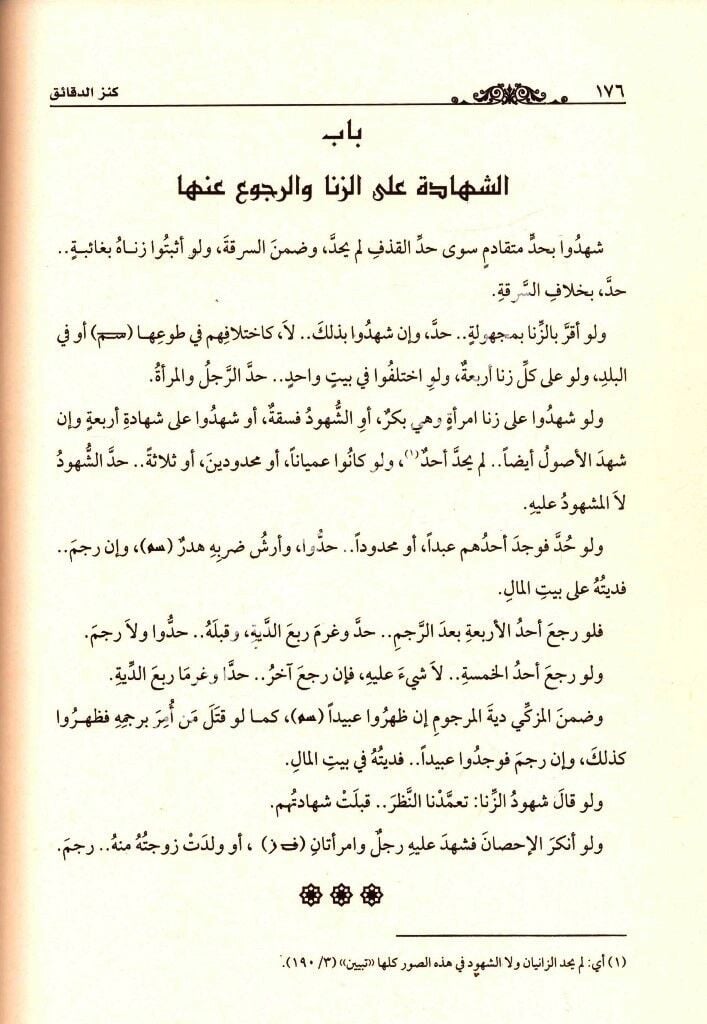 ١٧٦ كنز الدقائق
باب
الشهادة على الزنا والرجوع عنها
شهدُوا بحدٍّ متقادمٍ سوى حدِّ القذفِ لم يحدَّ، وضمنَ السرقةَ، ولو أثبتُوا زناهُ بغائبةٍ..
حدَّ، بخلافِ السَّرقةِ.
ولو أقرَّ بالزِّنا بمجهولةٍ.. حدَّ، وإن شهدُوا بذلكَ.. لاَ، كاختلافِهم في طوعِها (سم) أو في
البلدِ، ولو على كلِّ زنا أربعةٌ، ولو اختلفُوا في بيتٍ واحدٍ.. حدَّ الرَّجلُ والمرأةُ.
ولو شهدُوا على زنا امرأةٍ وهي بكرٌ، أوِ الشُّهودُ فسقةٌ، أو شهدُوا على شهادةِ أربعةٍ وإن
شهدَ الأصولُ أيضاً.. لم يحدَّ أحدٌ(١)، ولو كانُوا عمياناً، أو محدودينَ، أو ثلاثةً.. حدَّ الشُّهودُ
لاَ المشهودُ عليهِ.
ولو حُدَّ فوجدَ أحدُهم عبداً، أو محدوداً.. حدُّوا، وأرشُ ضربِهِ هدرٌ (سم)، وإن رجمَ..
فديتُهُ على بيتِ المالِ.
فلو رجعَ أحدُ الأربعةِ بعدَ الرَّجمِ.. حدَّ وغرمَ ربعَ الدِّيةِ، وقبلَهُ.. حدُّوا ولاَ رجمَ.
ولو رجعَ أحدُ الخمسةِ.. لاَ شيءَ عليهِ، فإن رجعَ آخرُ.. حدَّا وغرمَا ربعَ الدِّيةِ.
وضمنَ المزكِّي ديةَ المرجومِ إن ظهرُوا عبيداً (سم)، كما لو قتَلَ مَن أُمِرَ برجمِهِ فظهرُوا
كذلكَ، وإن رجمَ فوجدُوا عبيداً.. فديتُهُ في بيتِ المالِ.
ولو قالَ شهودُ الزِّنا: تعمَّدْنا النَّظرَ.. قبلَتْ شهادتُهم.
ولو أنكرَ الإحصانَ فشهدَ عليهِ رجلٌ وامرأتانِ (ف ز) ، أو ولدَتْ زوجتُهُ منهُ.. رجمَ.
(١) أي: لم يحد الزانيان ولا الشهود في هذه الصور كلها «تبيين» (٣/ ١٩٠).